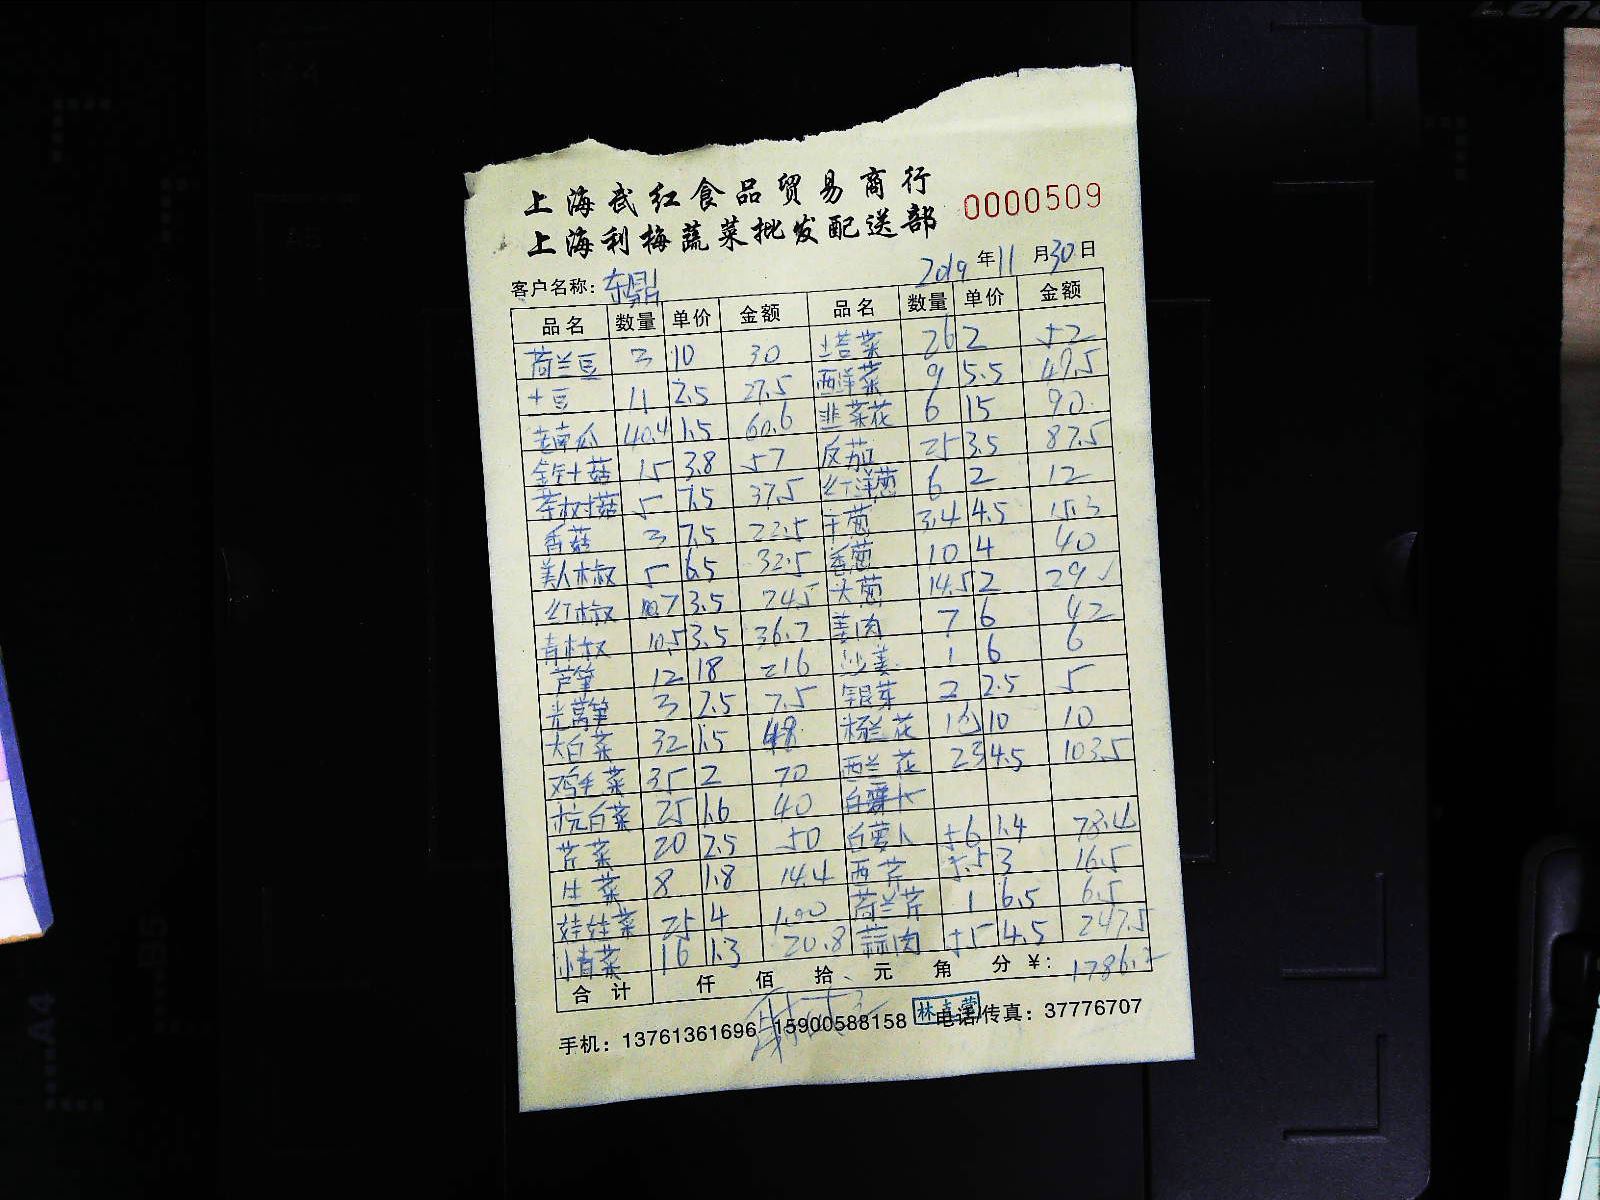 上海武红食品贸易商行
上海利梅蔬菜批发配送部
0000509
客户名称：东鼎 2019年11月30日
品名 数量 单价 金额 品名 数量 单价 金额
荷兰豆 3 10 30 土苔菜 26 2 52
土豆 11 2.5 27.5 西洋菜 9 5.5 49.5
老南瓜 40.4 1.5 60.6 韭菜花 6 15 90
金针菇 15 3.8 57 反茄 25 3.5 87.5
茶树菇 5 7.5 37.5 红洋葱 6 2 12
香菇 3 7.5 22.5 干葱 3.4 4.5 15.3
美人椒 5 6.5 32.5 香葱 10 4 40
红椒 7 3.5 24.5 大葱 14.5 2 29
青椒 10.5 3.5 36.7 姜肉 7 6 42
芦笋 12 18 216 沙姜 1 6 6
光莴笋 3 2.5 7.5 银芽 2 2.5 5
大白菜 32 1.5 48 花 1 10 10
鸡毛菜 35 2 70 西兰花 23 4.5 103.5
杭白菜 25 1.6 40 白萝卜
芹菜 20 2.5 50 白萝卜 56 1.4 78.4
生菜 8 1.8 14.4 西芹 5.5 3 16.5
娃娃菜 25 4 100 荷兰芹 1 6.5 6.5
小青菜 16 1.3 20.8 蒜肉 55 4.5 247.5
合计 仟 佰 拾 元 角 分 ￥：1786.2
手机：13761361696 15900588158 电话/传真：37776707